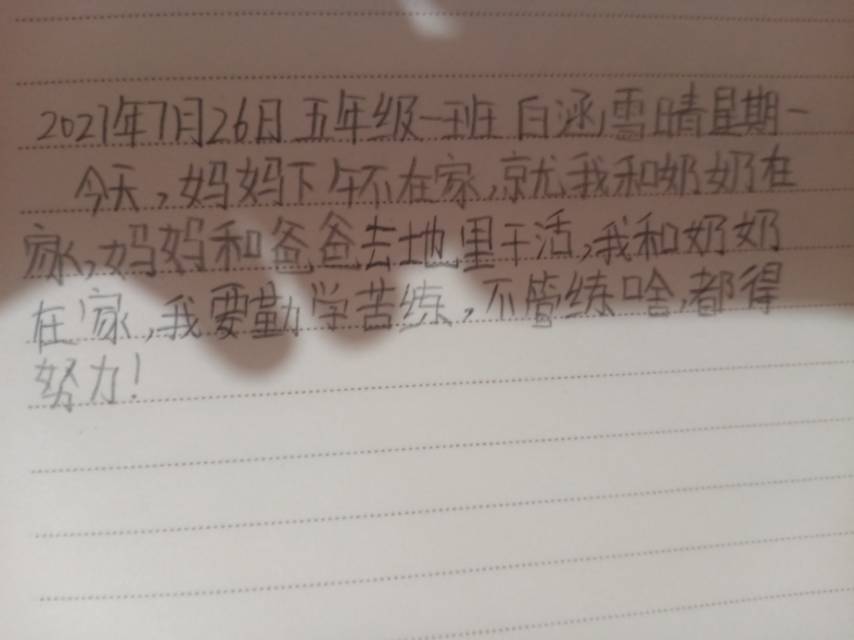 2021年7月26日 五年级一班 白涵雪 晴 星期一
今天,妈妈下午不在家,就我和奶奶在
家,妈妈和爸爸去地里干活,我和奶奶
在家,我要勤学苦练,不管练啥,都得
努力!